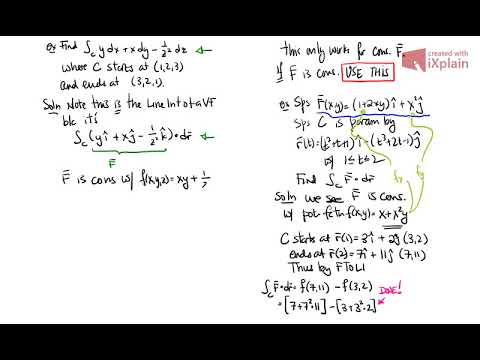 ex Find ∫_C y dx + x dy - 1/z² dz ←
where C starts at (1,2,3)
and ends at (3,2,1).
Soln Note this is the Line Int of a VF
b/c it's
∫_C (y î + x ĵ - 1/z² k̂) • dr̄ ←
F̄
F̄ is cons w/ f(x,y,z) = xy + 1/z
this only works for cons. F̄
If F̄ is cons. USE THIS
ex Sps F̄(x,y) = (1+2xy) î + x² ĵ
Sps C is param by
r̄(t) = (t²+t+1) î + (t³+2t-1) ĵ
w/ 1≤t≤2
fx
fy
Find ∫_C F̄ • dr̄
Soln we see F̄ is cons.
w/ pot. fctn f(x,y) = x + x²y
C starts at r̄(1) = 3î + 2ĵ (3,2)
ends at r̄(2) = 7î + 11ĵ (7,11)
Thus by FTOLI
∫_C F̄ • dr̄ = f(7,11) - f(3,2) DONE!
= [7+7²•11] - [3+3²•2]
created with
iXplain